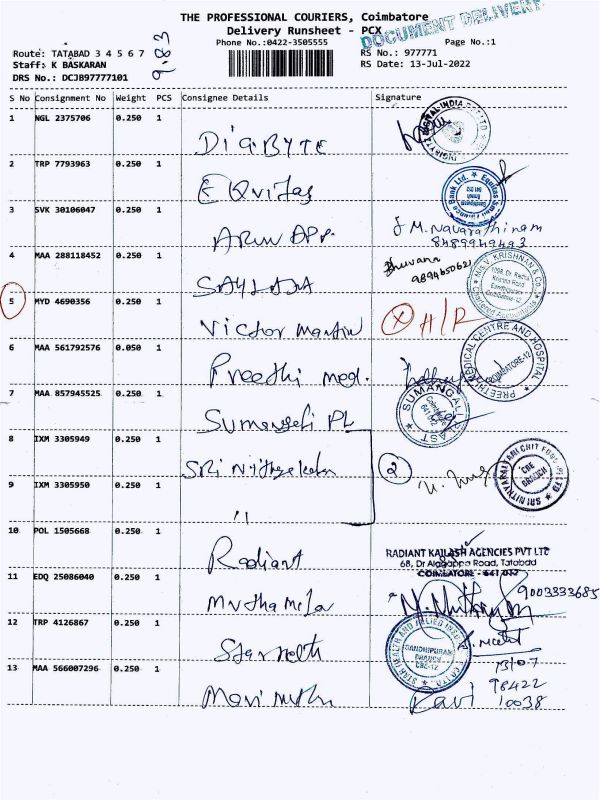 THE PROFESSIONAL COURIERS, Coimbatore
Delivery Runsheet - PCX
DOCUMENT DELIVERY
Phone No.:0422-3505555
Page No.:1
Route: TATABAD 3 4 5 6 7
9.83
RS No.: 977771
Staff: K BASKARAN
RS Date: 13-Jul-2022
DRS No.: DCJB97777101
S No Consignment No Weight PCS Consignee Details Signature
1 NGL 2375706 0.250 1
DIGBYTE
2 TRP 7793963 0.250 1
EQuitas
3 SVK 30106047 0.250 1
ARUN APP.
J M. Navarathinam
8489949493
4 MAA 288118452 0.250 1
SAYLAJA
Bhuvana
9894650621
5 MYD 4690356 0.250 1
Victor Martin
X H/R
6 MAA 561792576 0.050 1
Preethi med.
PREETHI MEDICAL CENTRE AND HOSPITAL
COIMBATORE-12
7 MAA 857945525 0.250 1
Sumangali PL
SUMANGALI
8 IXM 3305949 0.250 1
SRi Nithyakalyani
2
9 IXM 3305950 0.250 1
"
SRI NITHYAKALYANI CHIT FUND (P) LTD
CBE
BRANCH
10 POL 1505668 0.250 1
Radiant
RADIANT KAILASH AGENCIES PVT LTD
68, Dr Alagappa Road, Tatabad
COIMBATORE - 641 012
11 EDQ 25086040 0.250 1
9003333685
12 TRP 4126867 0.250 1
Star Health
STAR HEALTH AND ALLIED
GANDHIPURAM
BRANCH
CBE-12
13/07
13 MAA 566007296 0.250 1
Ravi
98422
10038